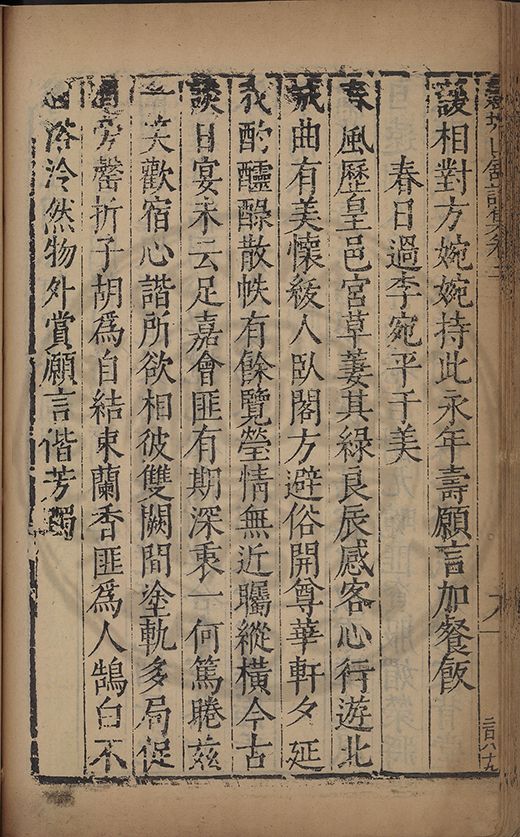 諼相對方婉婉持此永年壽願言加餐飯
春日過李宛平于美
春風歷皇邑宮草萋其綠良辰感客心行遊北
城曲有美懷綏人臥閣方避俗開尊華軒夕延
我酌醽醁散帙有餘覽瑩情無近矚縱橫今古
談日宴未云足嘉會匪有期深衷一何篤睠茲
一笑歡宿心諧所欲相彼雙闕間塗軌多局促
旁罄折子胡為自結束蘭香匪為人鵠白不
浴泠然物外賞願言偕芳躅
二百八十九